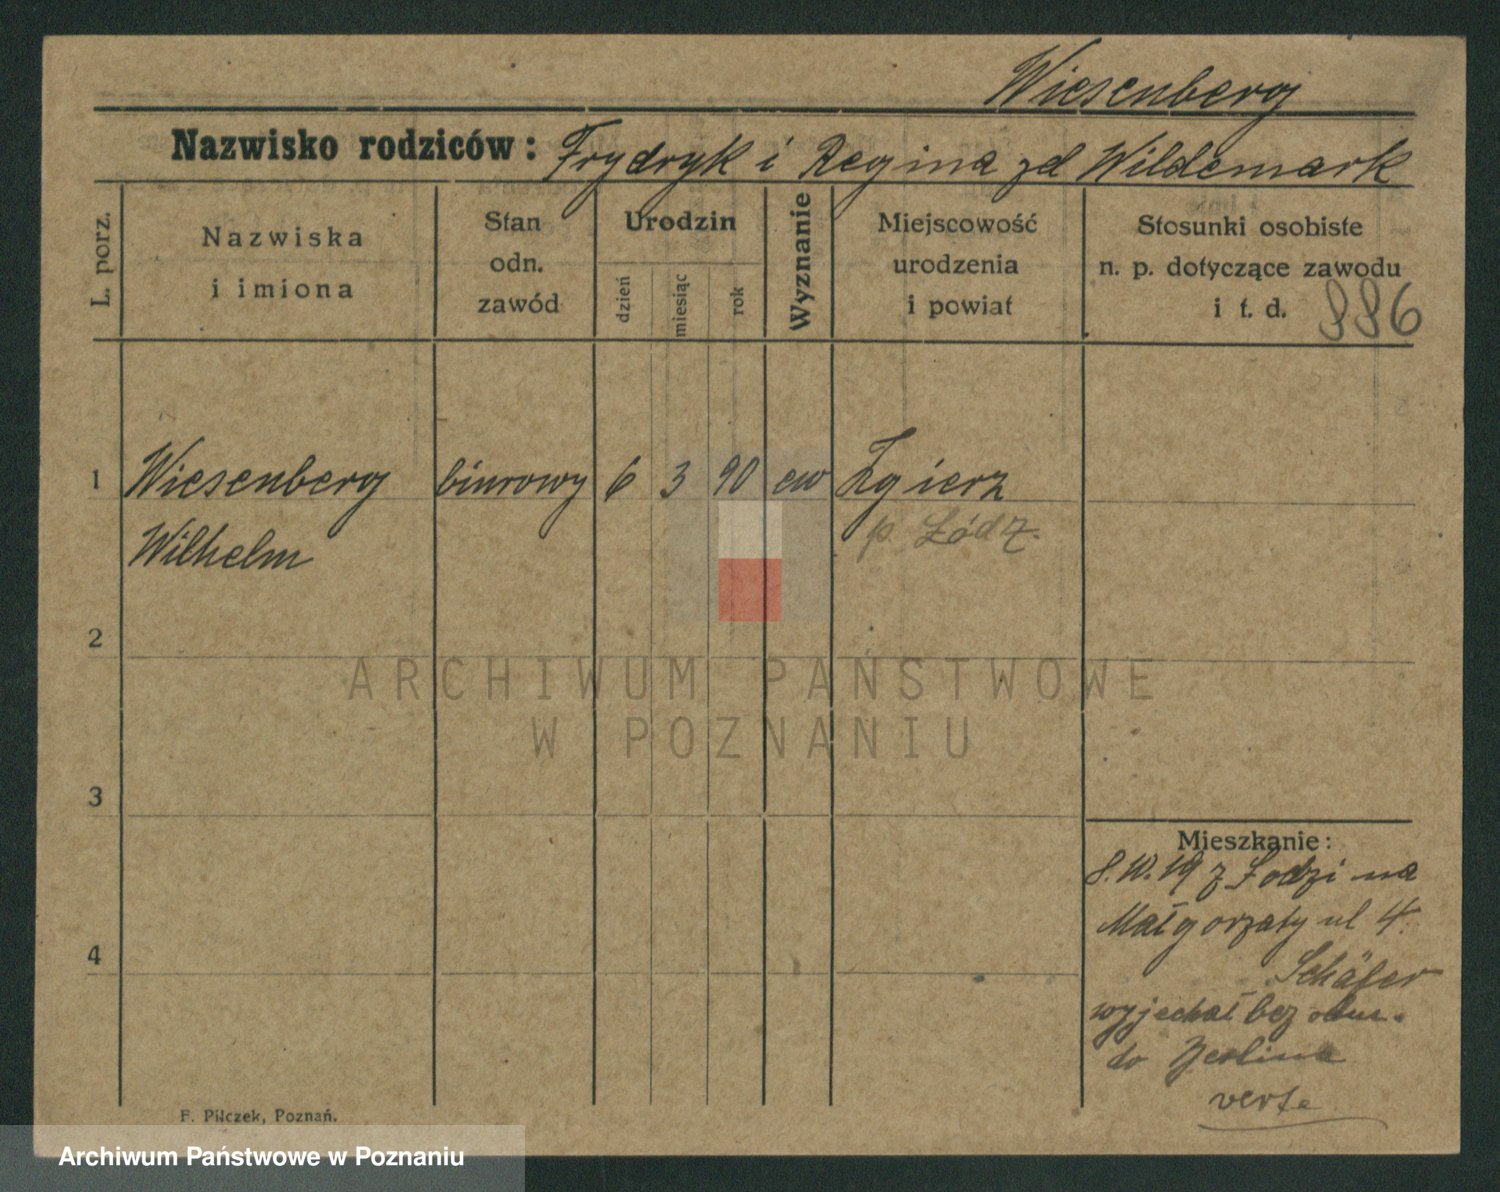 Wiesenberg
Nazwisko rodziców: Frydryk i Regina zd Wildemark
L. porz.
Nazwiska
i imiona
Stan
odn.
zawód
Urodzin
dzień
miesiąc
rok
Wyznanie
Miejscowość
urodzenia
i powiat
Stosunki osobiste
n. p. dotyczące zawodu
i t. d.
886
1 Wiesenberg biurowy 6 3 90 ew Zgierz
Wilhelm p. Łódz.
2
ARCHIWUM PAŃSTWOWE
W POZNANIU
3
4
Mieszkanie:
8.10.19 z Łodzi na
Małgorzaty ul 4.
Schäfer
wyjechał bez
do Berlina
verte
F. Pilczek, Poznań.
Archiwum Państwowe w Poznaniu